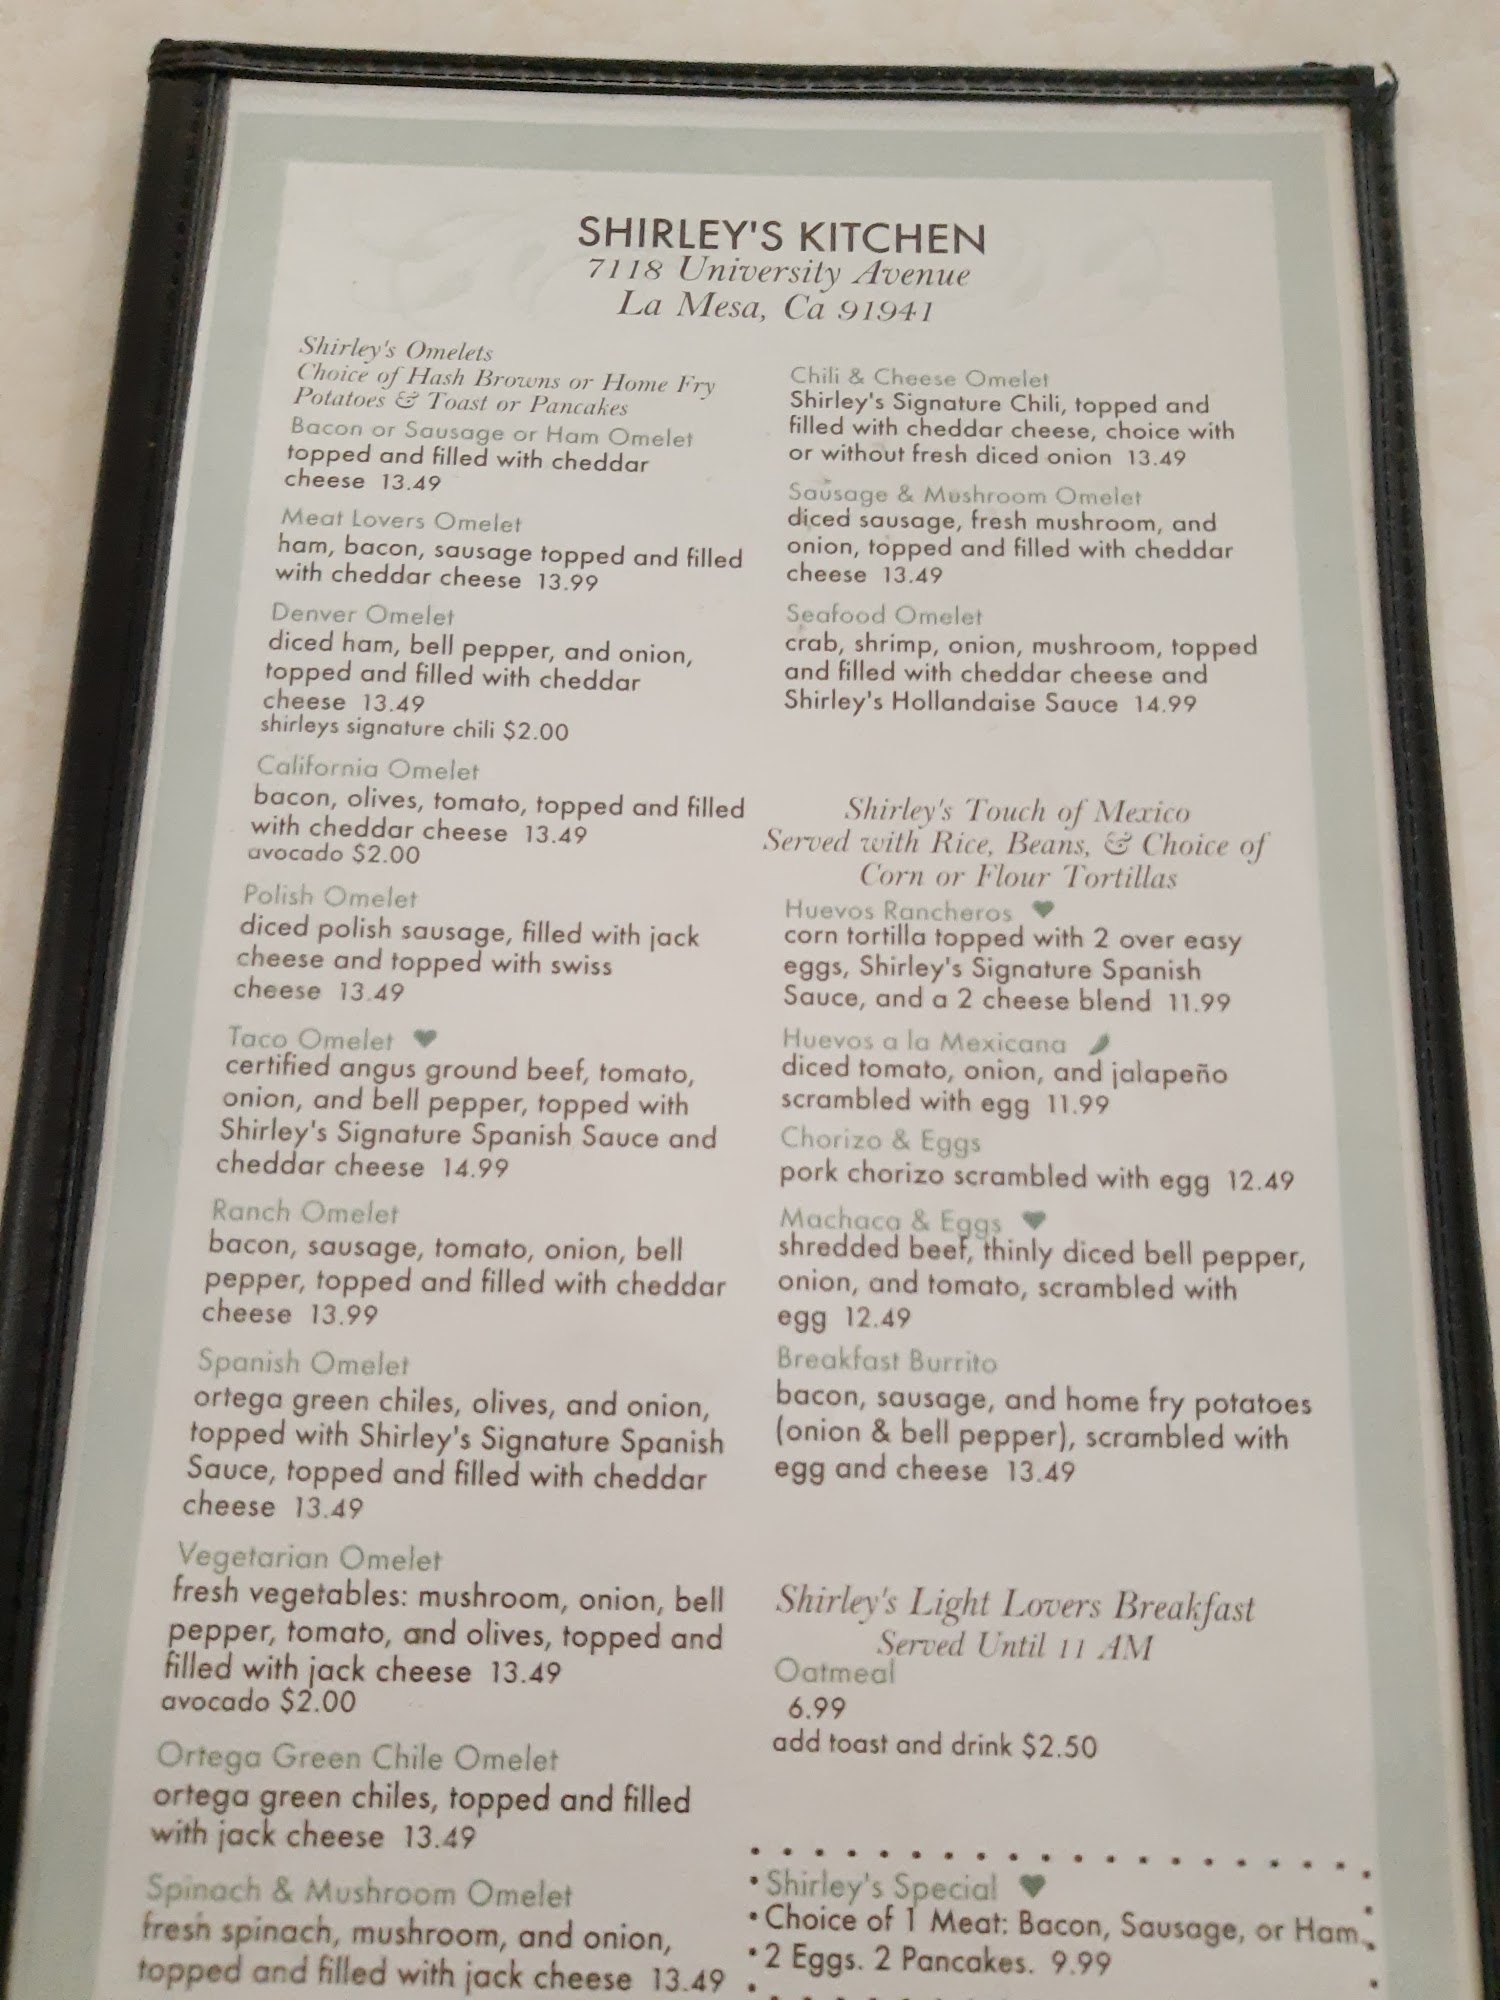 SHIRLEY'S KITCHEN
7118 University Avenue
La Mesa, Ca 91941
Shirley's Omelets
Choice of Hash Browns or Home Fry
Potatoes & Toast or Pancakes
Bacon or Sausage or Ham Omelet
topped and filled with cheddar
cheese 13.49
Meat Lovers Omelet
ham, bacon, sausage topped and filled
with cheddar cheese 13.99
Denver Omelet
diced ham, bell pepper, and onion,
topped and filled with cheddar
cheese 13.49
shirleys signature chili $2.00
California Omelet
bacon, olives, tomato, topped and filled
with cheddar cheese 13.49
avocado $2.00
Polish Omelet
diced polish sausage, filled with jack
cheese and topped with swiss
cheese 13.49
Taco Omelet
certified angus ground beef, tomato,
onion, and bell pepper, topped with
Shirley's Signature Spanish Sauce and
cheddar cheese 14.99
Ranch Omelet
bacon, sausage, tomato, onion, bell
pepper, topped and filled with cheddar
cheese 13.99
Spanish Omelet
ortega green chiles, olives, and onion,
topped with Shirley's Signature Spanish
Sauce, topped and filled with cheddar
cheese 13.49
Vegetarian Omelet
fresh vegetables: mushroom, onion, bell
pepper, tomato, and olives, topped and
filled with jack cheese 13.49
avocado $2.00
Ortega Green Chile Omelet
ortega green chiles, topped and filled
with jack cheese 13.49
Spinach & Mushroom Omelet
fresh spinach, mushroom, and onion,
topped and filled with jack cheese 13.49
Chili & Cheese Omelet
Shirley's Signature Chili, topped and
filled with cheddar cheese, choice with
or without fresh diced onion 13.49
Sausage & Mushroom Omelet
diced sausage, fresh mushroom, and
onion, topped and filled with cheddar
cheese 13.49
Seafood Omelet
crab, shrimp, onion, mushroom, topped
and filled with cheddar cheese and
Shirley's Hollandaise Sauce 14.99
Shirley's Touch of Mexico
Served with Rice, Beans, & Choice of
Corn or Flour Tortillas
Huevos Rancheros
corn tortilla topped with 2 over easy
eggs, Shirley's Signature Spanish
Sauce, and a 2 cheese blend 11.99
Huevos a la Mexicana
diced tomato, onion, and jalapeño
scrambled with egg 11.99
Chorizo & Eggs
pork chorizo scrambled with egg 12.49
Machaca & Eggs
shredded beef, thinly diced bell pepper,
onion, and tomato, scrambled with
egg 12.49
Breakfast Burrito
bacon, sausage, and home fry potatoes
(onion & bell pepper), scrambled with
egg and cheese 13.49
Shirley's Light Lovers Breakfast
Served Until 11 AM
Oatmeal
6.99
add toast and drink $2.50
Shirley's Special
Choice of 1 Meat: Bacon, Sausage, or Ham.
2 Eggs. 2 Pancakes. 9.99